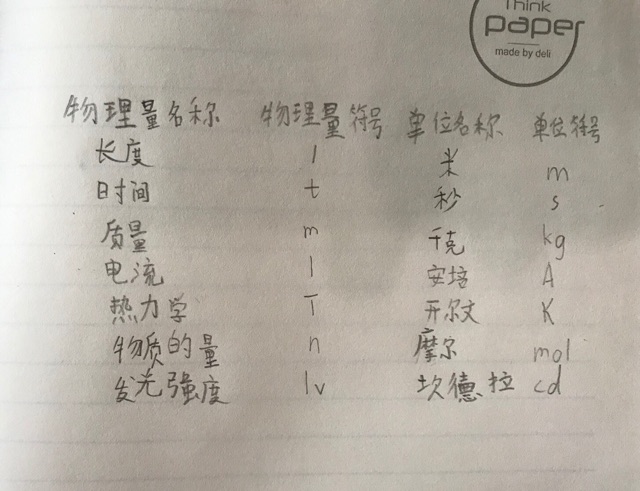 Think
paper
made by deli
物理量名称 物理量符号 单位名称 单位符号
长度 l 米 m
日时间 t 秒 s
质量 m 千克 kg
电流 I 安培 A
热力学 T 开尔文 K
物质的量 n 摩尔 mol
发光强度 Iv 坎德拉 cd